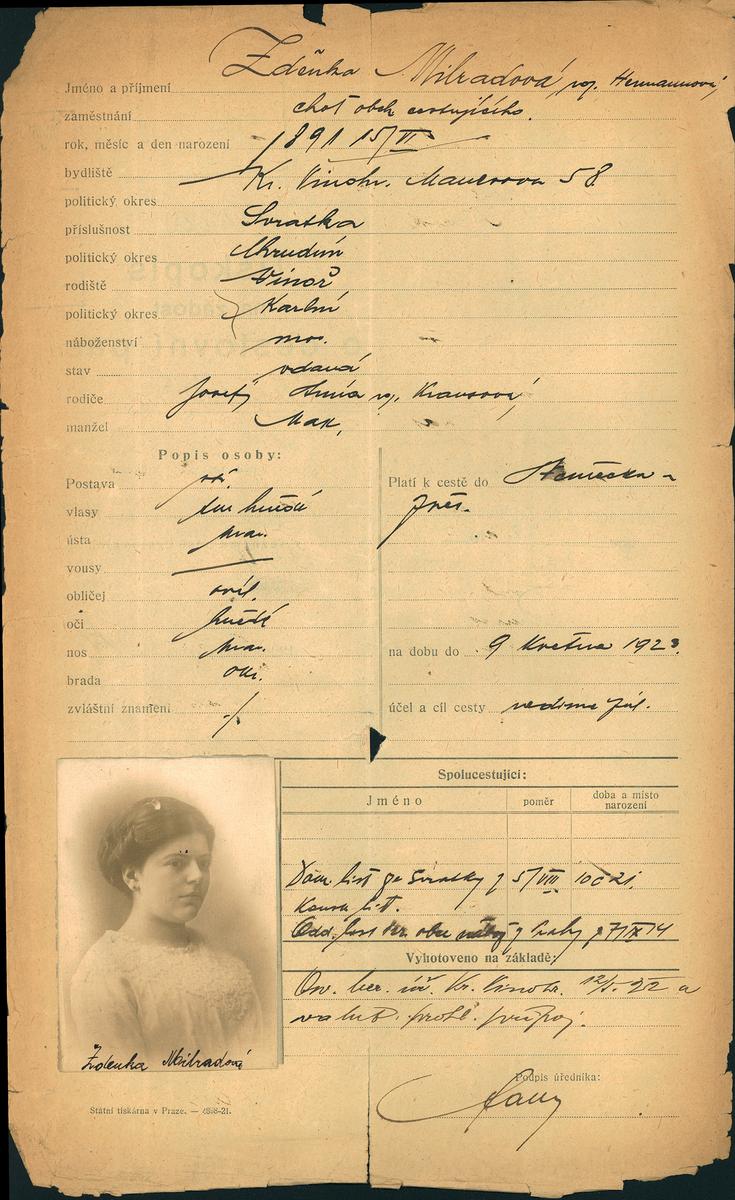 Jméno a příjmení Zdeňka Milradová, roz. Hermannová,
zaměstnání choť obch. cestujícího.
rok, měsíc a den narození 1891 15/VI
bydliště Kr. Vinohr. Manesova 58
politický okres
příslušnost Svratka
politický okres Chrudim
rodiště Vinoř
politický okres Karlín
náboženství mos.
stav vdaná
rodiče Josef, Anna roz. Krausová,
manžel Max,
Popis osoby:
Postava stř.
vlasy tm. hnědé
ústa prav.
vousy
obličej ovál.
oči hnědé
nos prav.
brada okr.
zvláštní znamení ./.
Platí k cestě do Německa
na dobu do 9 Května 1923.
účel a cíl cesty
Spolucestující:
Jméno poměr doba a místo narození
Dom. list ze Svratky z 5/VIII 10 č 21.
list.
Odd. list z Prahy z 7/IX 14
Vyhotoveno na základě:
Osv. ber. úř. Kr. Vinohr. 12/5. 922 a
Zdenka Milradová
Podpis úředníka:
Státní tiskárna v Praze. — 2838-21.